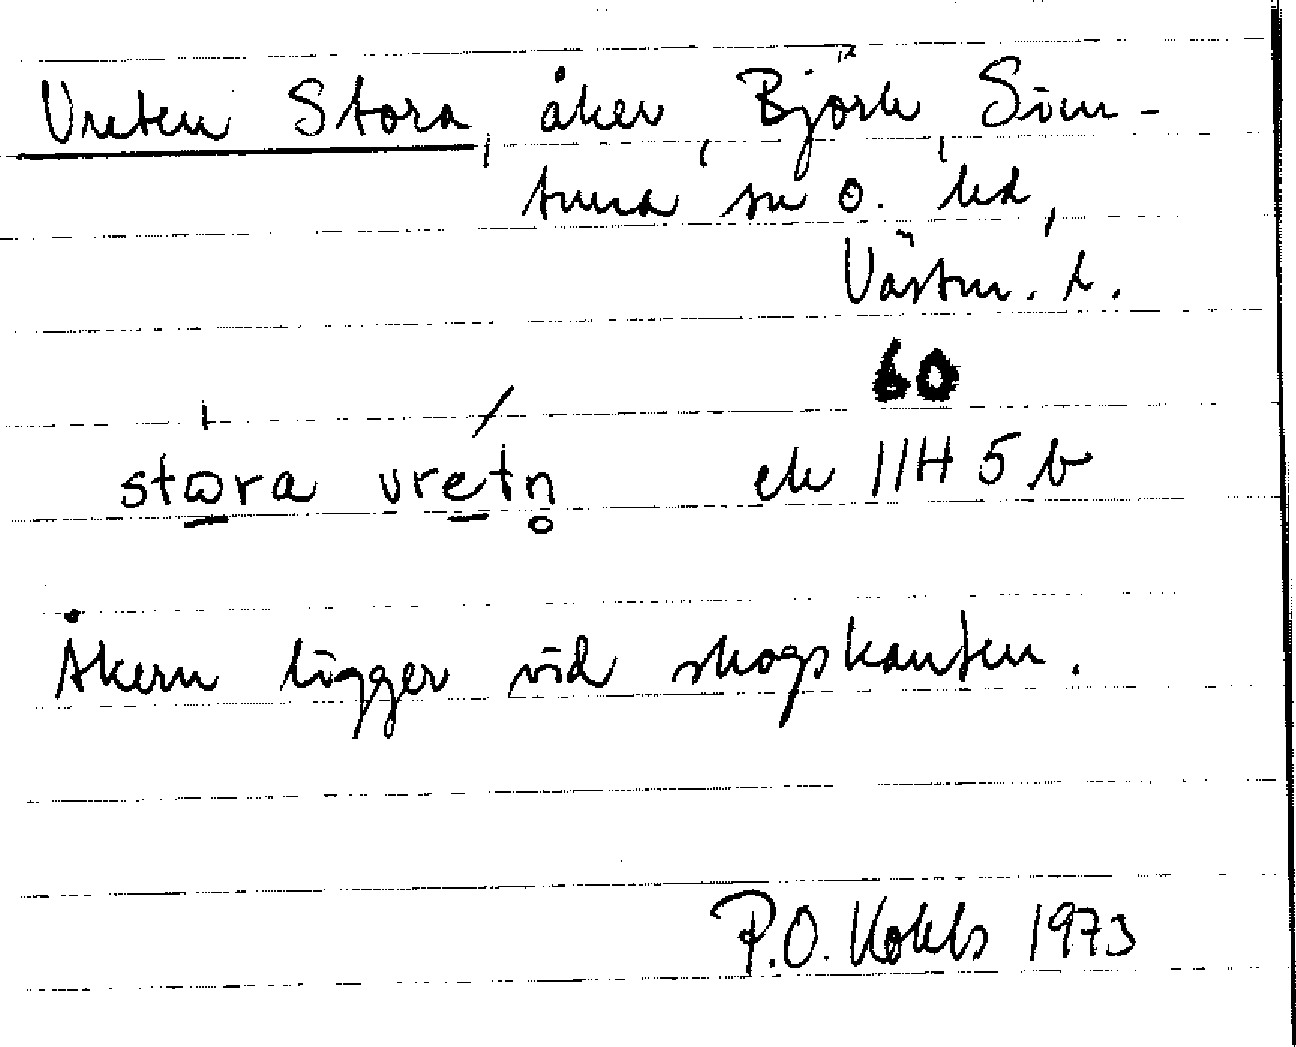 Vreten Stora, åker, Björk, Sim-
tuna sn o. hd,
Västm. l.
60
stora vretn ek 11H 5 b
Åkern ligger vid skogskanten.
P.O. 1973